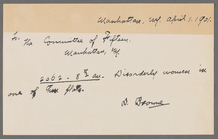 Manhattan, NY. April 1. 1901.
To The Committee of Fifteen.
Manhattan, NY.
2062 - 8th av. Disorderly women in
one of the flats.
D. Browne